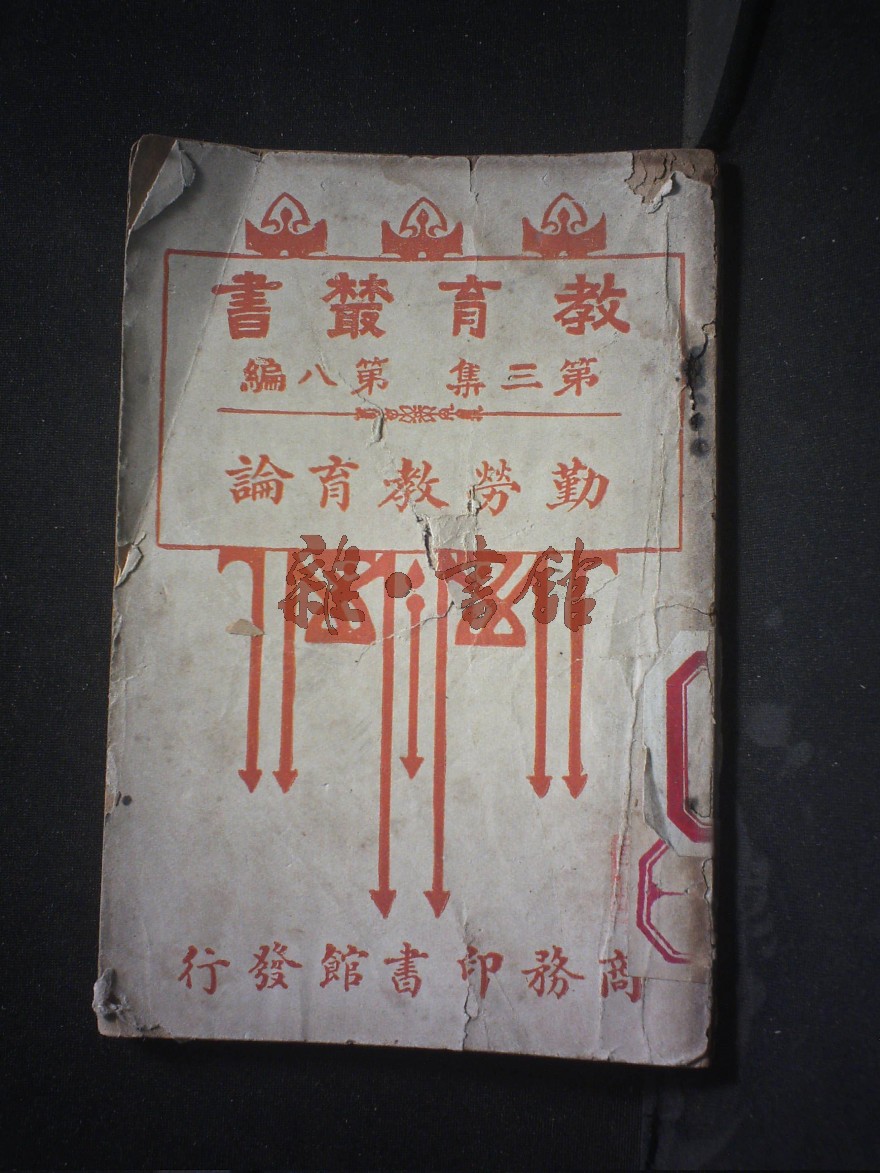 教育叢書
第三集 第八編
勤勞教育論
雜·書館
商務印書館發行